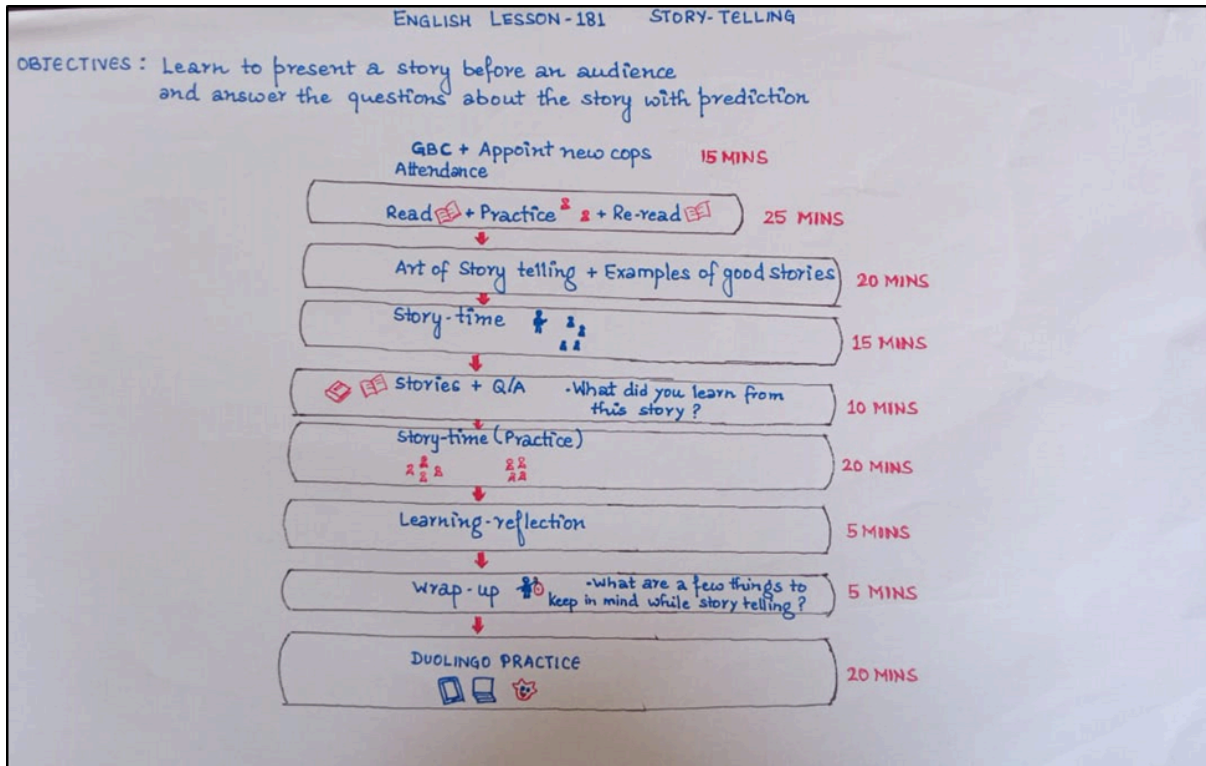 ENGLISH LESSON-181 STORY-TELLING
OBJECTIVES: Learn to present a story before an audience
and answer the questions about the story with prediction
GBC + Appoint new cops 15 MINS
Attendance
Read + Practice + Re-read 25 MINS
Art of Story telling + Examples of good stories 20 MINS
Story-time 15 MINS
Stories + Q/A -What did you learn from
this story? 10 MINS
Story-time (Practice)
20 MINS
Learning-reflection 5 MINS
Wrap-up -What are a few things to
keep in mind while story telling? 5 MINS
DUOLINGO PRACTICE 20 MINS